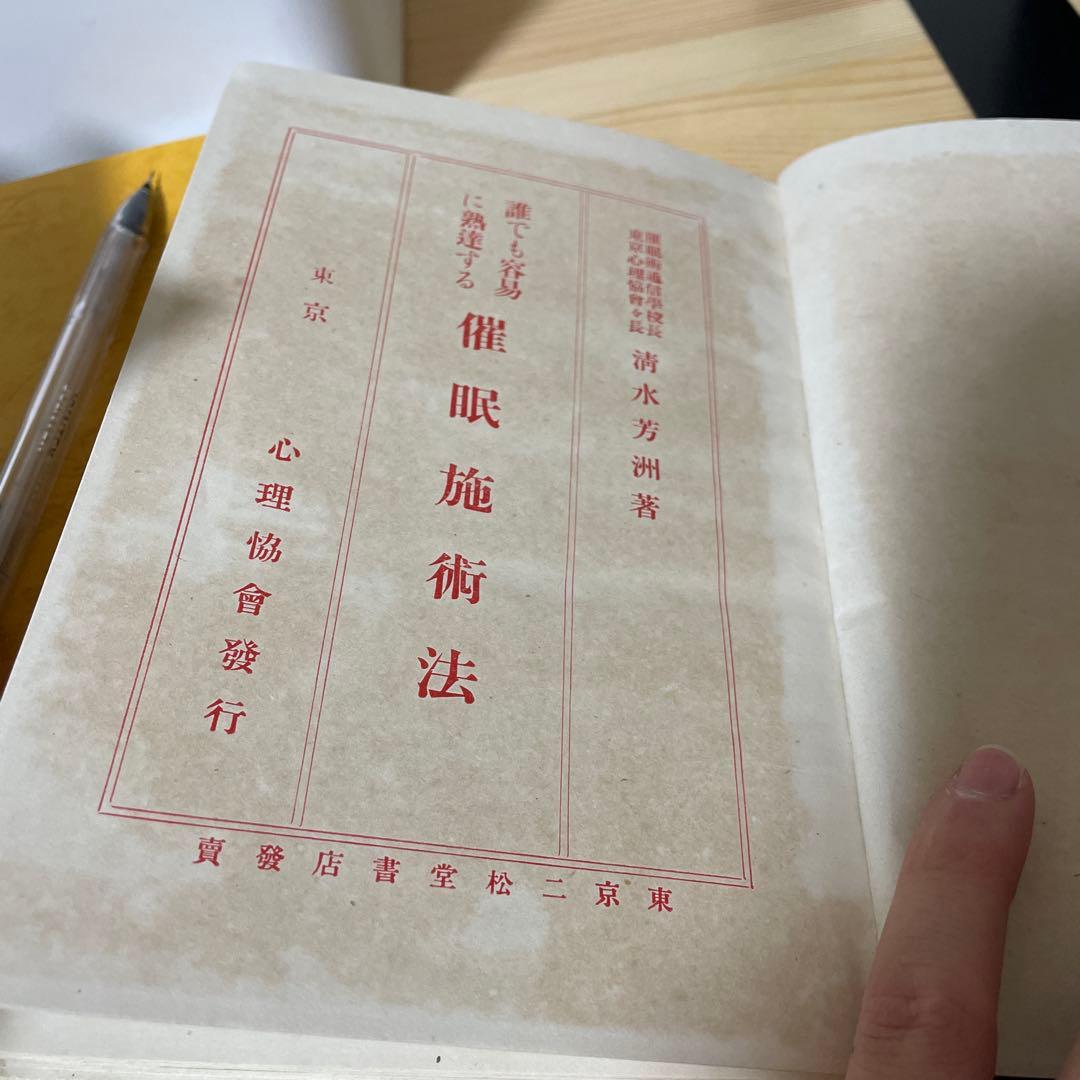 催眠術通信學校長
東京心理協會々長
清水芳洲著
誰でも容易
に熟達する
催眠施術法
東京
心理協會發行
東京二松堂書店發賣